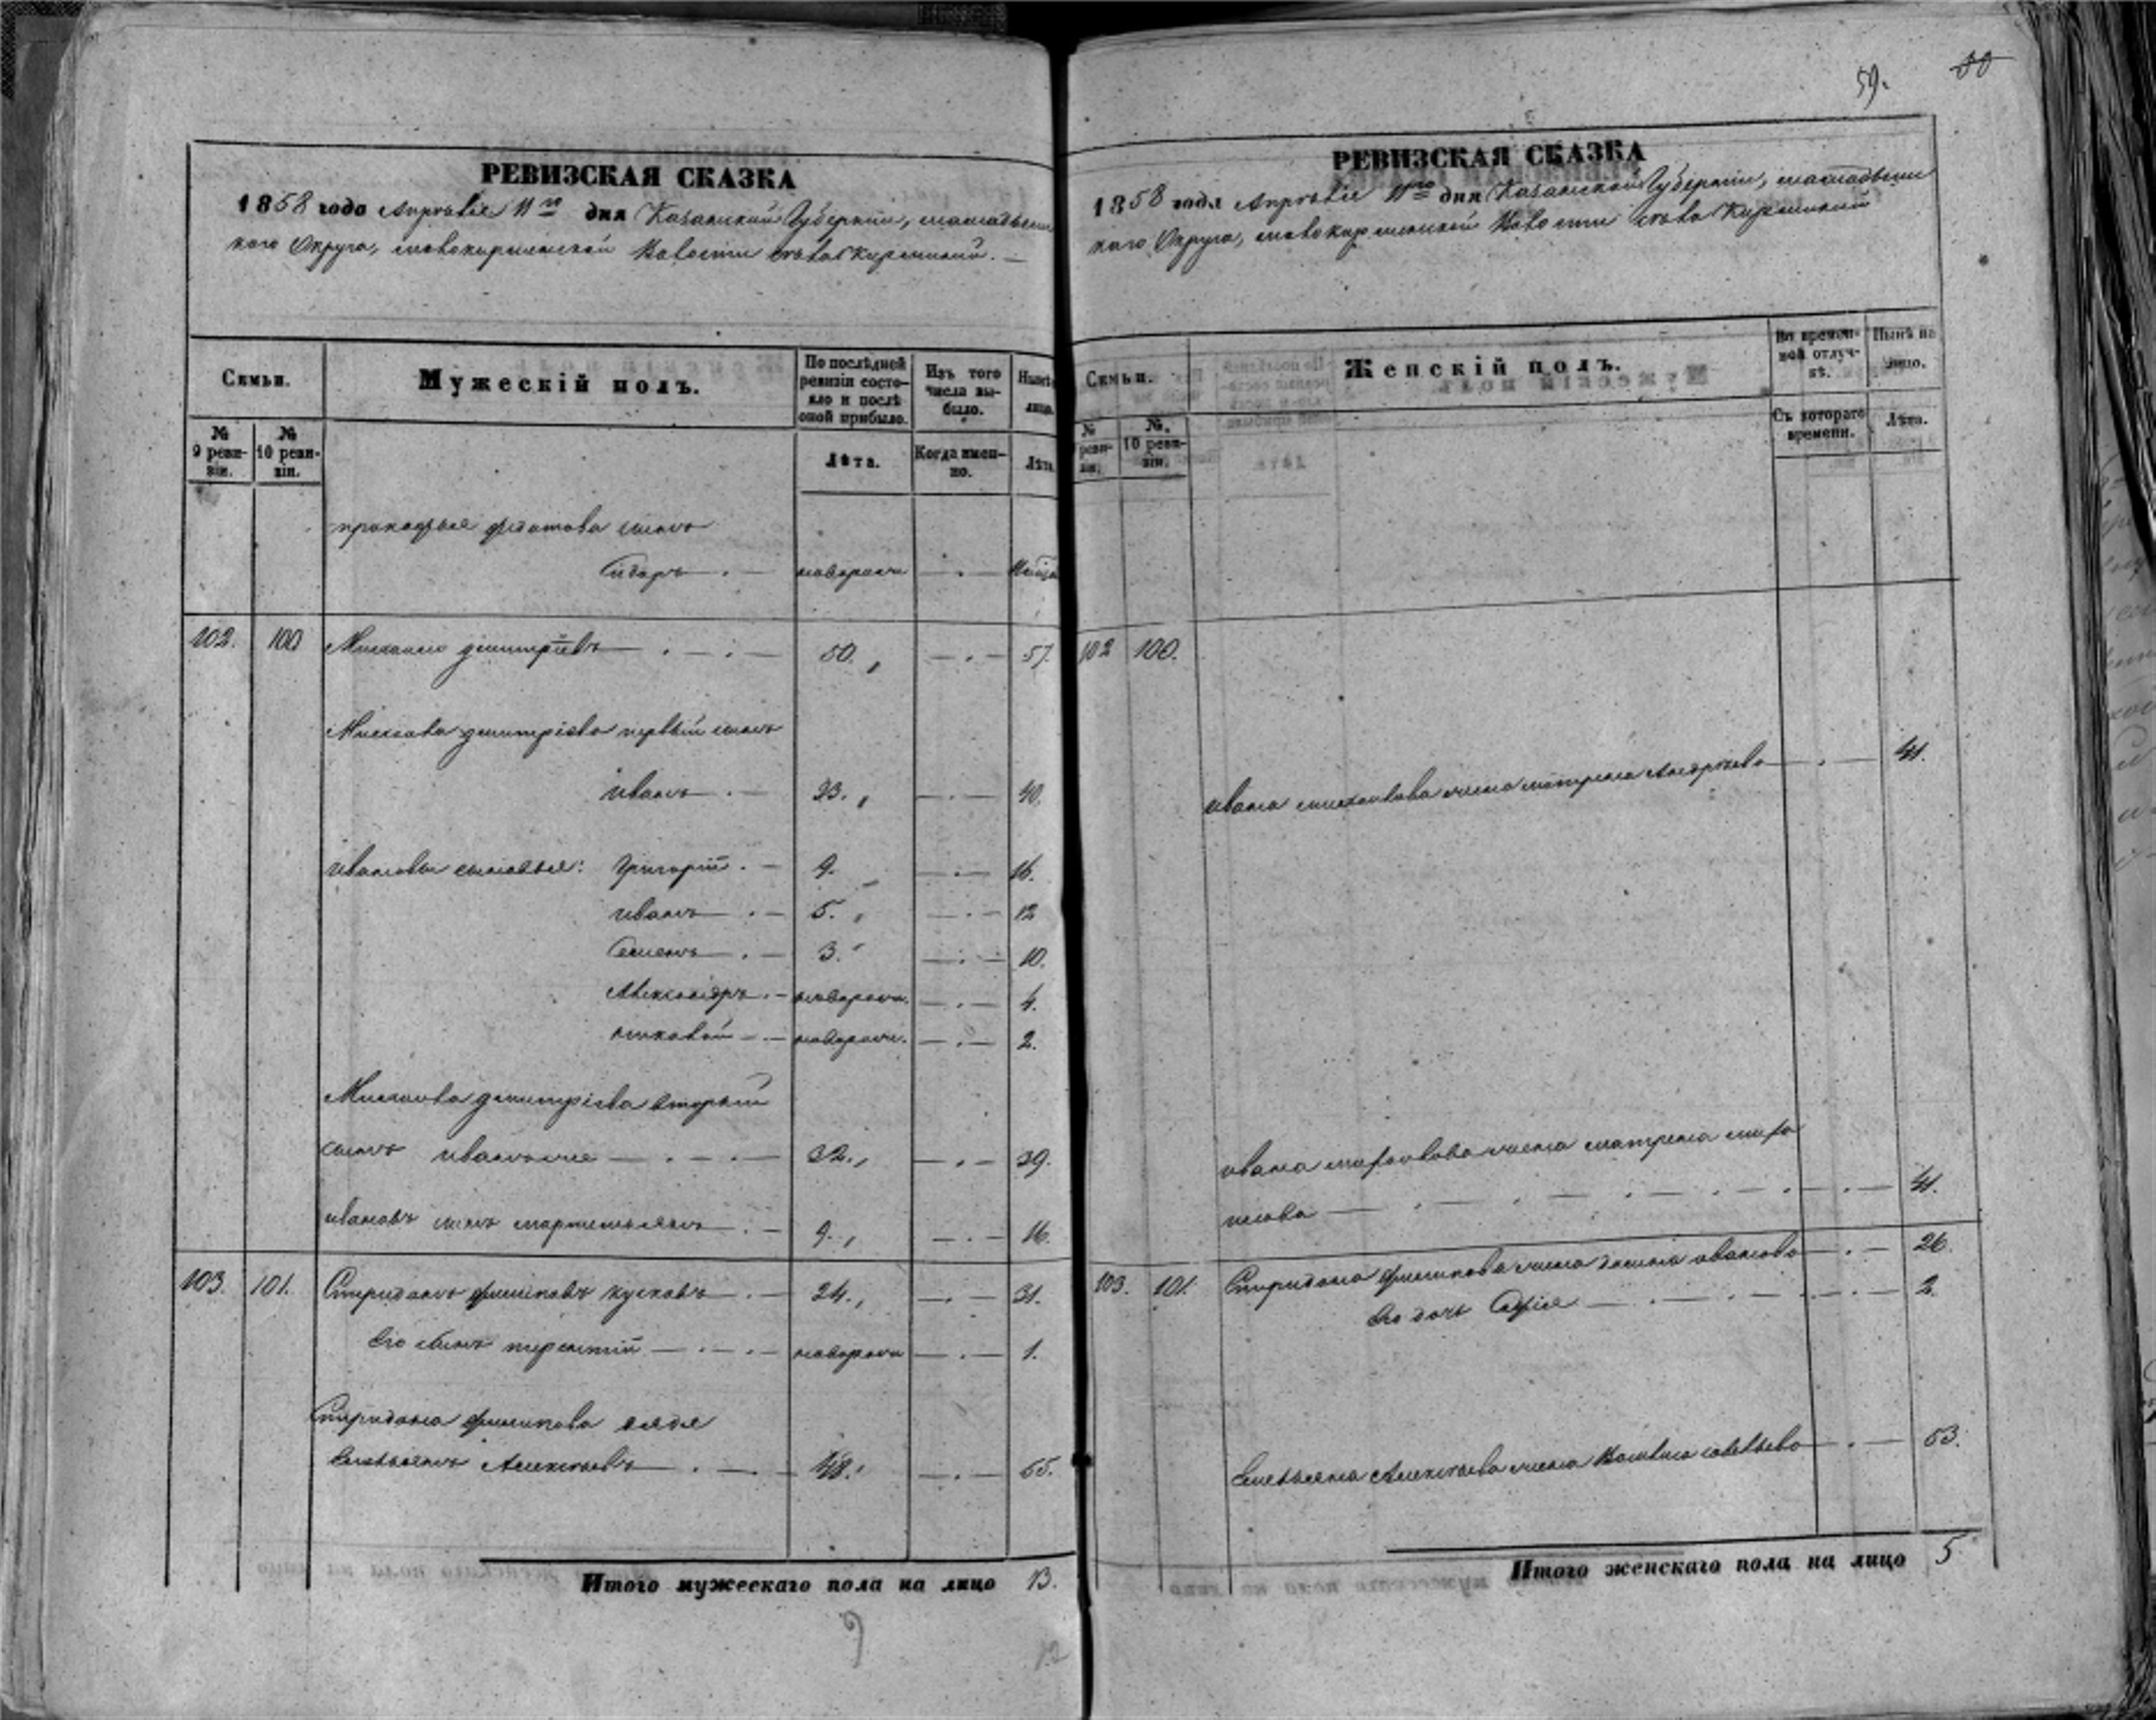 59. 60
РЕВИЗСКАЯ СКАЗКА
1858 года Апрѣля 11го дня Казанской Губернии, мамадыш
кого Округа, новокирменской Волости
Семьи.
Мужескій полъ.
По послѣдней ревизіи состояло и послѣ оной прибыло.
Изъ того числа выбыло.
Нынѣ лицо.
№ 9 ревизіи.
№ 10 ревизіи.
Лѣта.
Когда именно.
Лѣта
прокофья филатова сынъ
Сидоръ новорожн
102. 100 Михаило димитріевъ 50. 57.
Михаила димитріева первый сынъ
иванъ 33. 40.
ивановы сыновья: Григорій 9. 16.
иванъ 5. 12
Семенъ 3. 10.
Александръ новорожн. 4.
николай новорожн. 2.
Михаила димитріева вторый
сынъ иванъ 32. 39.
ивановъ сынъ мартемьянъ 9. 16.
103. 101. Спиридонъ филиповъ кусковъ 24. 31.
Его сынъ терентий новорожн 1.
Спиридона филипова дядя
Емельянъ Алексѣевъ 48. 55.
Итого мужескаго пола на лицо 13.
РЕВИЗСКАЯ СКАЗКА
1858 года Апрѣля 11го дня Казанской Губернии, мамадыш
кого Округа, новокирменской Волости
Семьи.
Женскій полъ.
Во временной отлучкѣ.
Нынѣ на лицо.
№ ревизіи.
№. 10 ревизіи.
Съ котораго времени.
Лѣта.
102 100.
ивана михаилова жена матрена Андрѣева 41.
ивана михаилова жена матрена
41.
103. 101. Спиридона филипова жена иванова 26.
Его дочь Софія 2.
Емельяна Алексѣева жена савельева 53.
Итого женскаго пола на лицо 5